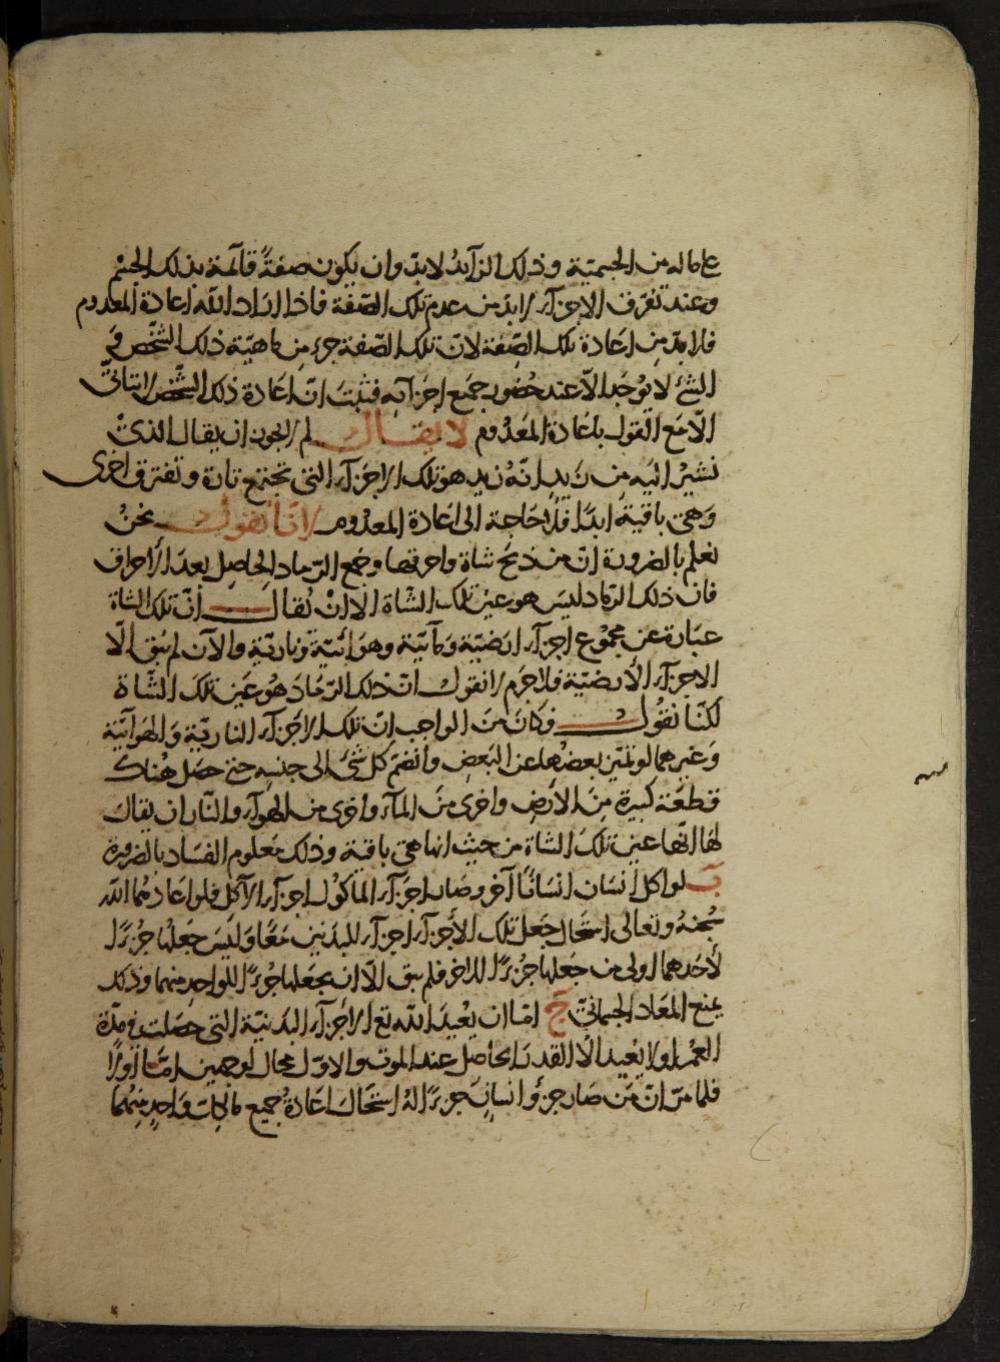 على ماله من الجسمية وذلك الزآيد لا بد وان يكون صفةً قآئمة بذلك الجسْم
وعند تفرّق الاجزآء لابد من عدم تلك الصّفة فاذا اراد الله اعادة المعدوم
فلابدّ من اعادة تلك الصّفة لانّ تلك الصّفة جزء من ماهيّة ذلك الشّخص في
الشئ لا يوُجَد الاّ عند حُضور جميع اجزآيه فثبتَ انّ اعَادة ذلك الشّخص لا يتاتىّ
الاّ مَع القول باعَادة المَعْدُوم لا يقــال لم لا يجوز ان يقال الذىْ
نشيرُ اليَه من زَيد انّه زيد هو تلك الاجزآء التى تجتمع تارة وتفترق اخرى
وَهىَ باقية ابدًا فلا حَاجة الى اعَادة المعدُوم لانّا نقول نحنُ
نعلم بالضرورة انّ من ذبحَ شاة واحرقها وجمع الرّماد الحاصِل بعدَ الاحراق
فان ذلك الرّماد ليسَ هو عين تلك الشّاة الا ان يُقال انّ تلك الشاة
عبَارة عن مجمُوع اجزآء ارَضيّة ومآئيّة وهوَائيّة وناريّة والآن لم يَبق الّا
الاجزآء الأرضيّة فلا جَرم لا نقول انّ ذلك الرّمَادَ هُو عَين تلكَ الشّاة
لكنّا نقُول فكانَ منَ الواجب انّ تلك الاجَزآء الناريّة وَالهَوآئيّة
وَغيرهما لو تميّز بعضُها عن البَعض وانضم كل شئ الى جنسه حتى حصَل هُناك
قطعَة كبيرة مِنَ الارَض واخرى منَ المآء واخرى من الهوآء والنّار ان يقال
لها انّها عين تلكَ الشاة من حيث انها هى باقية وذلك معلوم الفسَاد بالضرورة
بَ لو اكل انسَان انسَانًا آخر وصَار اجَزآء الماكوُل اجزآء الآكل فلو اعَادهُما الله
سُبحنهُ وتعالى استحال جَعل تلك الأجزآء اجزآء للبدَنين مَعًا وَليسَ جَعلُها جُزءًا
لأحَدهما اولى من جَعلها جُزءًا للاخر فلم يبق الاّ ان يجعَلها جُزءًا للواحد منهما وذلك
يمنع المعَاد الجسمانيّ جَ امّا ان يُعيدَ الله تع الاجَزآء البدَنيّة التى حصَلت في مدّة
العمُر او لا يُعيد الاّ القدرَ الحاصل عند الموت والاوّل محال لوجهين امّا اوّلا
فلما مرّ انّ من صَار جزؤ انسانٍ جزءًا لهُ استحَال اعَادةُ جَميع مالِكل وَاحدٍ منهُما